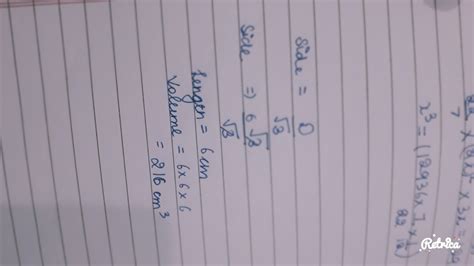 22/7 × (2x)² × 3x =
x³ = (12936 × 7 × 1 / 22 12)
Side = D/√3
Side ⇒ 6√3/√3
Length = 6 cm
Volume = 6×6×6
= 216 cm³
Retrica